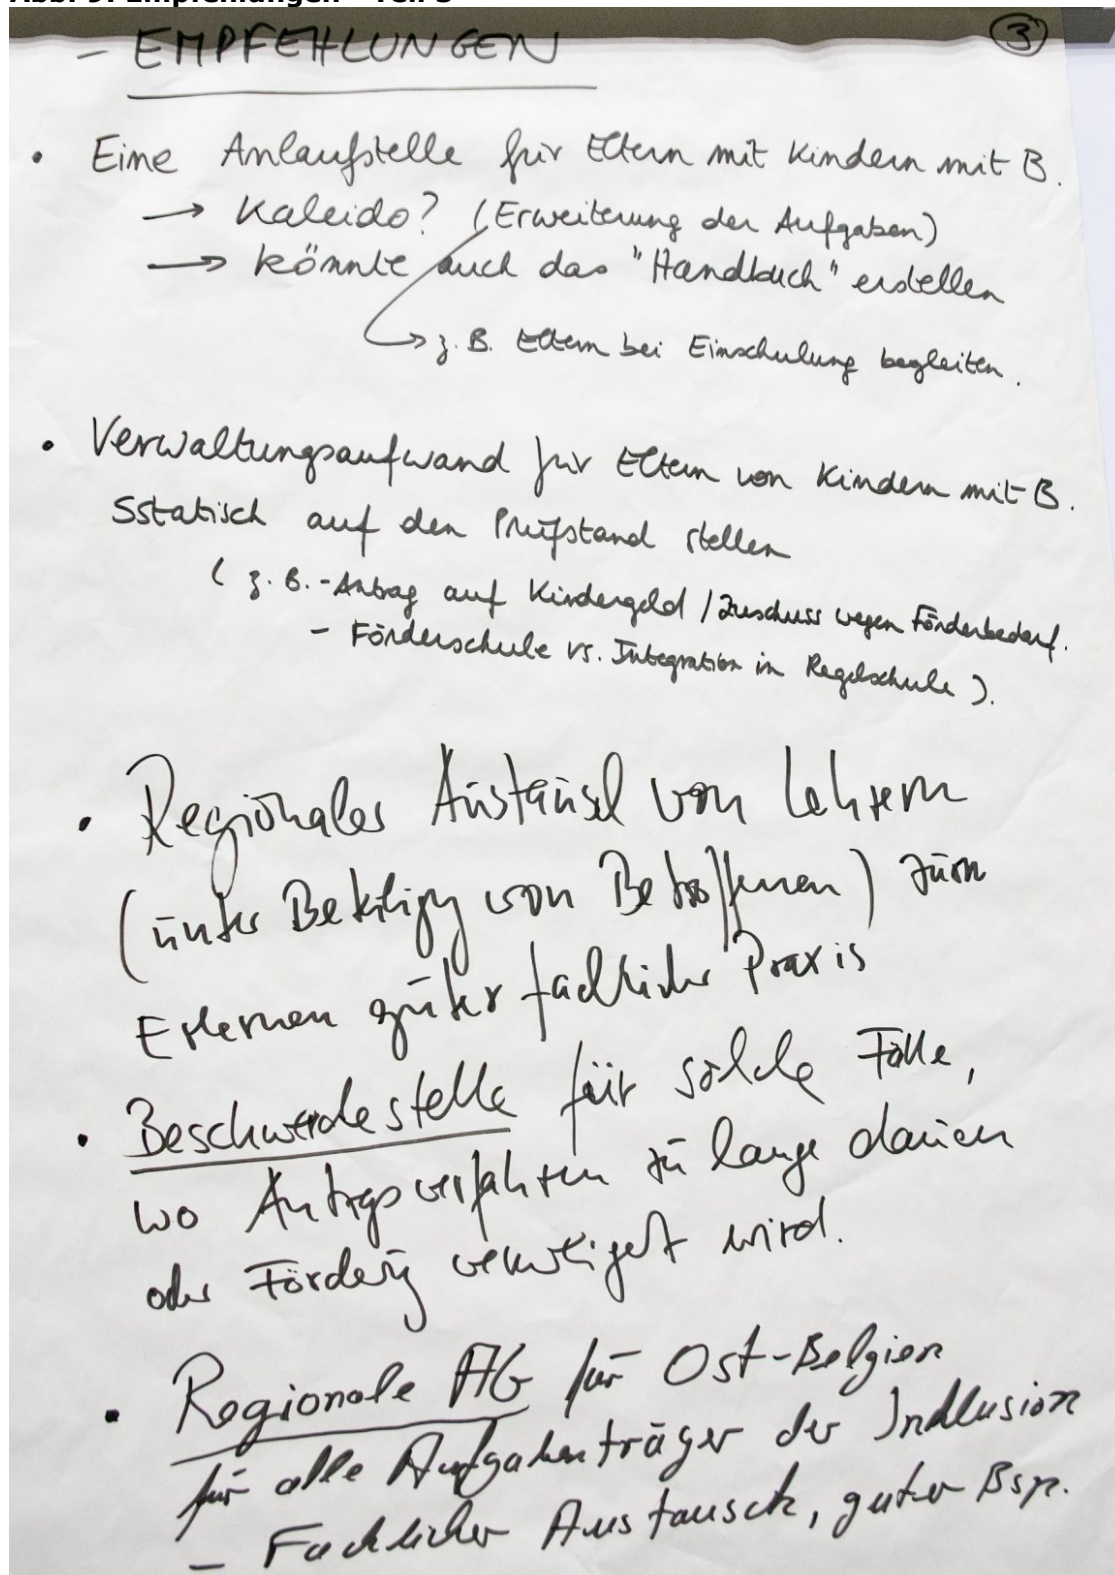 – EMPFEHLUNGEN ③
• Eine Anlaufstelle für Eltern mit Kindern mit B.
→ Kaleido? (Erweiterung der Aufgaben)
→ könnte auch das "Handbuch" erstellen
↳ z. B. Eltern bei Einschulung begleiten.
• Verwaltungsaufwand für Eltern von Kindern mit B.
Sstatisch auf den Prüfstand stellen
( z. B. - Antrag auf Kindergeld / Zuschuss wegen Förderbedarf.
– Förderschule vs. Integration in Regelschule ).
• Regionaler Austausch von Lehrern
(unter Beteiligung von Betroffenen) zum
Erlernen guter fachlicher Praxis
• Beschwerdestelle für solche Fälle,
wo Antragsverfahren zu lange dauern
oder Förderung verweigert wird.
• Regionale AG für Ost-Belgien
für alle Aufgabenträger der Inklusion
– Fachlicher Austausch, guter Bsp.